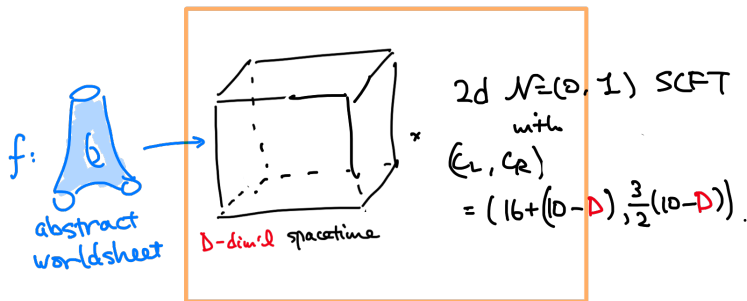 f:
abstract
worldsheet
D-dim'l spacetime
×
2d N=(0,1) SCFT
with
(C_L, C_R)
= (16+(10-D), 3/2(10-D)).